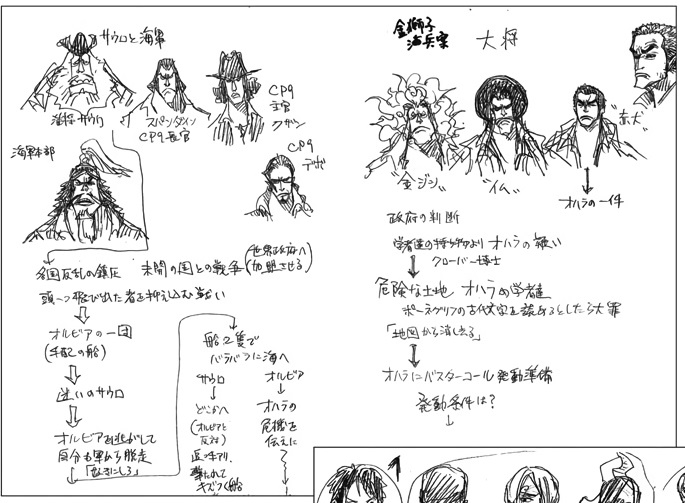 サウロと海軍
海将サウロ
スパンダイン
CP9長官
CP9
主官
クザン
海軍本部
CP9
デボ
各国反乱の鎮圧 未開の国との戦争(世界政府へ
加盟させる)
頭一つ飛び出た者を押え込む戦い
オルビアの一団
(手配の船)
迷いのサウロ
オルビアを逃がして
自分も軍から脱走
「好きにしろ」
船2隻で
バラバラに海へ
サウロ
どこかへ
(オルビアと
反対)
キズつく船
オルビア
オハラの
危機を
伝えに
金獅子
海兵案
大将
"金ジシ"
"イム"
"赤犬"
オハラの一件
政府の判断
学者達の持ち物より オハラの疑い
クローバー博士
危険な土地 オハラの学者達
ポーネグリフの古代文字を読めるとしたら大罪
「地図から消し去る」
オハラにバスターコール発動準備
発動条件は?